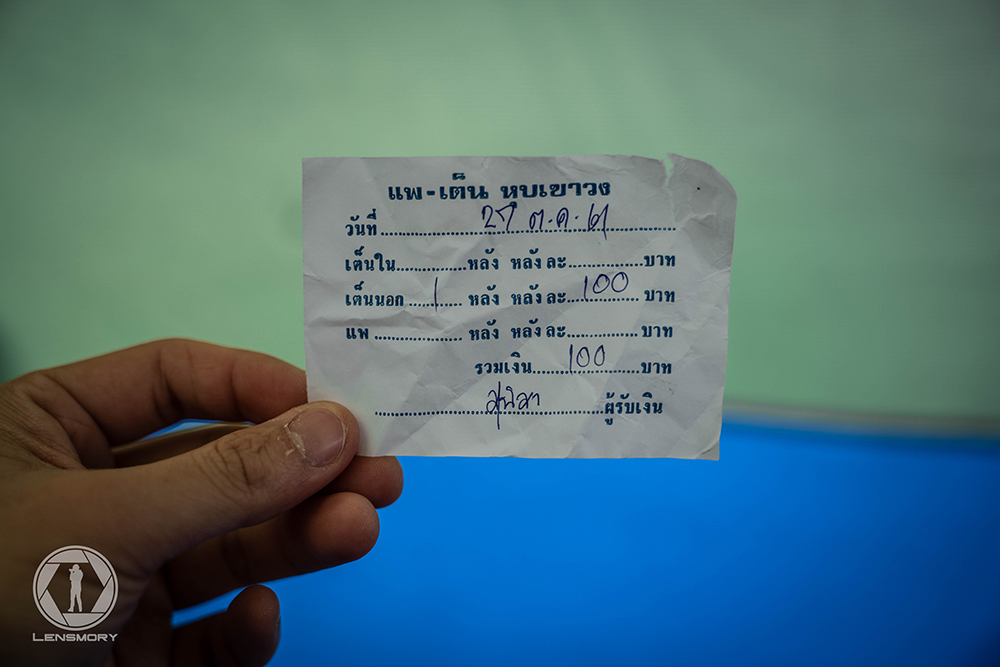 แพ-เต็น หุบเขาวง
วันที่ 27 ต.ค. 61
เต็นใน............หลัง หลังละ............บาท
เต็นนอก 1 หลัง หลังละ 100 บาท
แพ ............... หลัง หลังละ............บาท
รวมเงิน 100 บาท
สุนิสา ผู้รับเงิน
LENSMORY